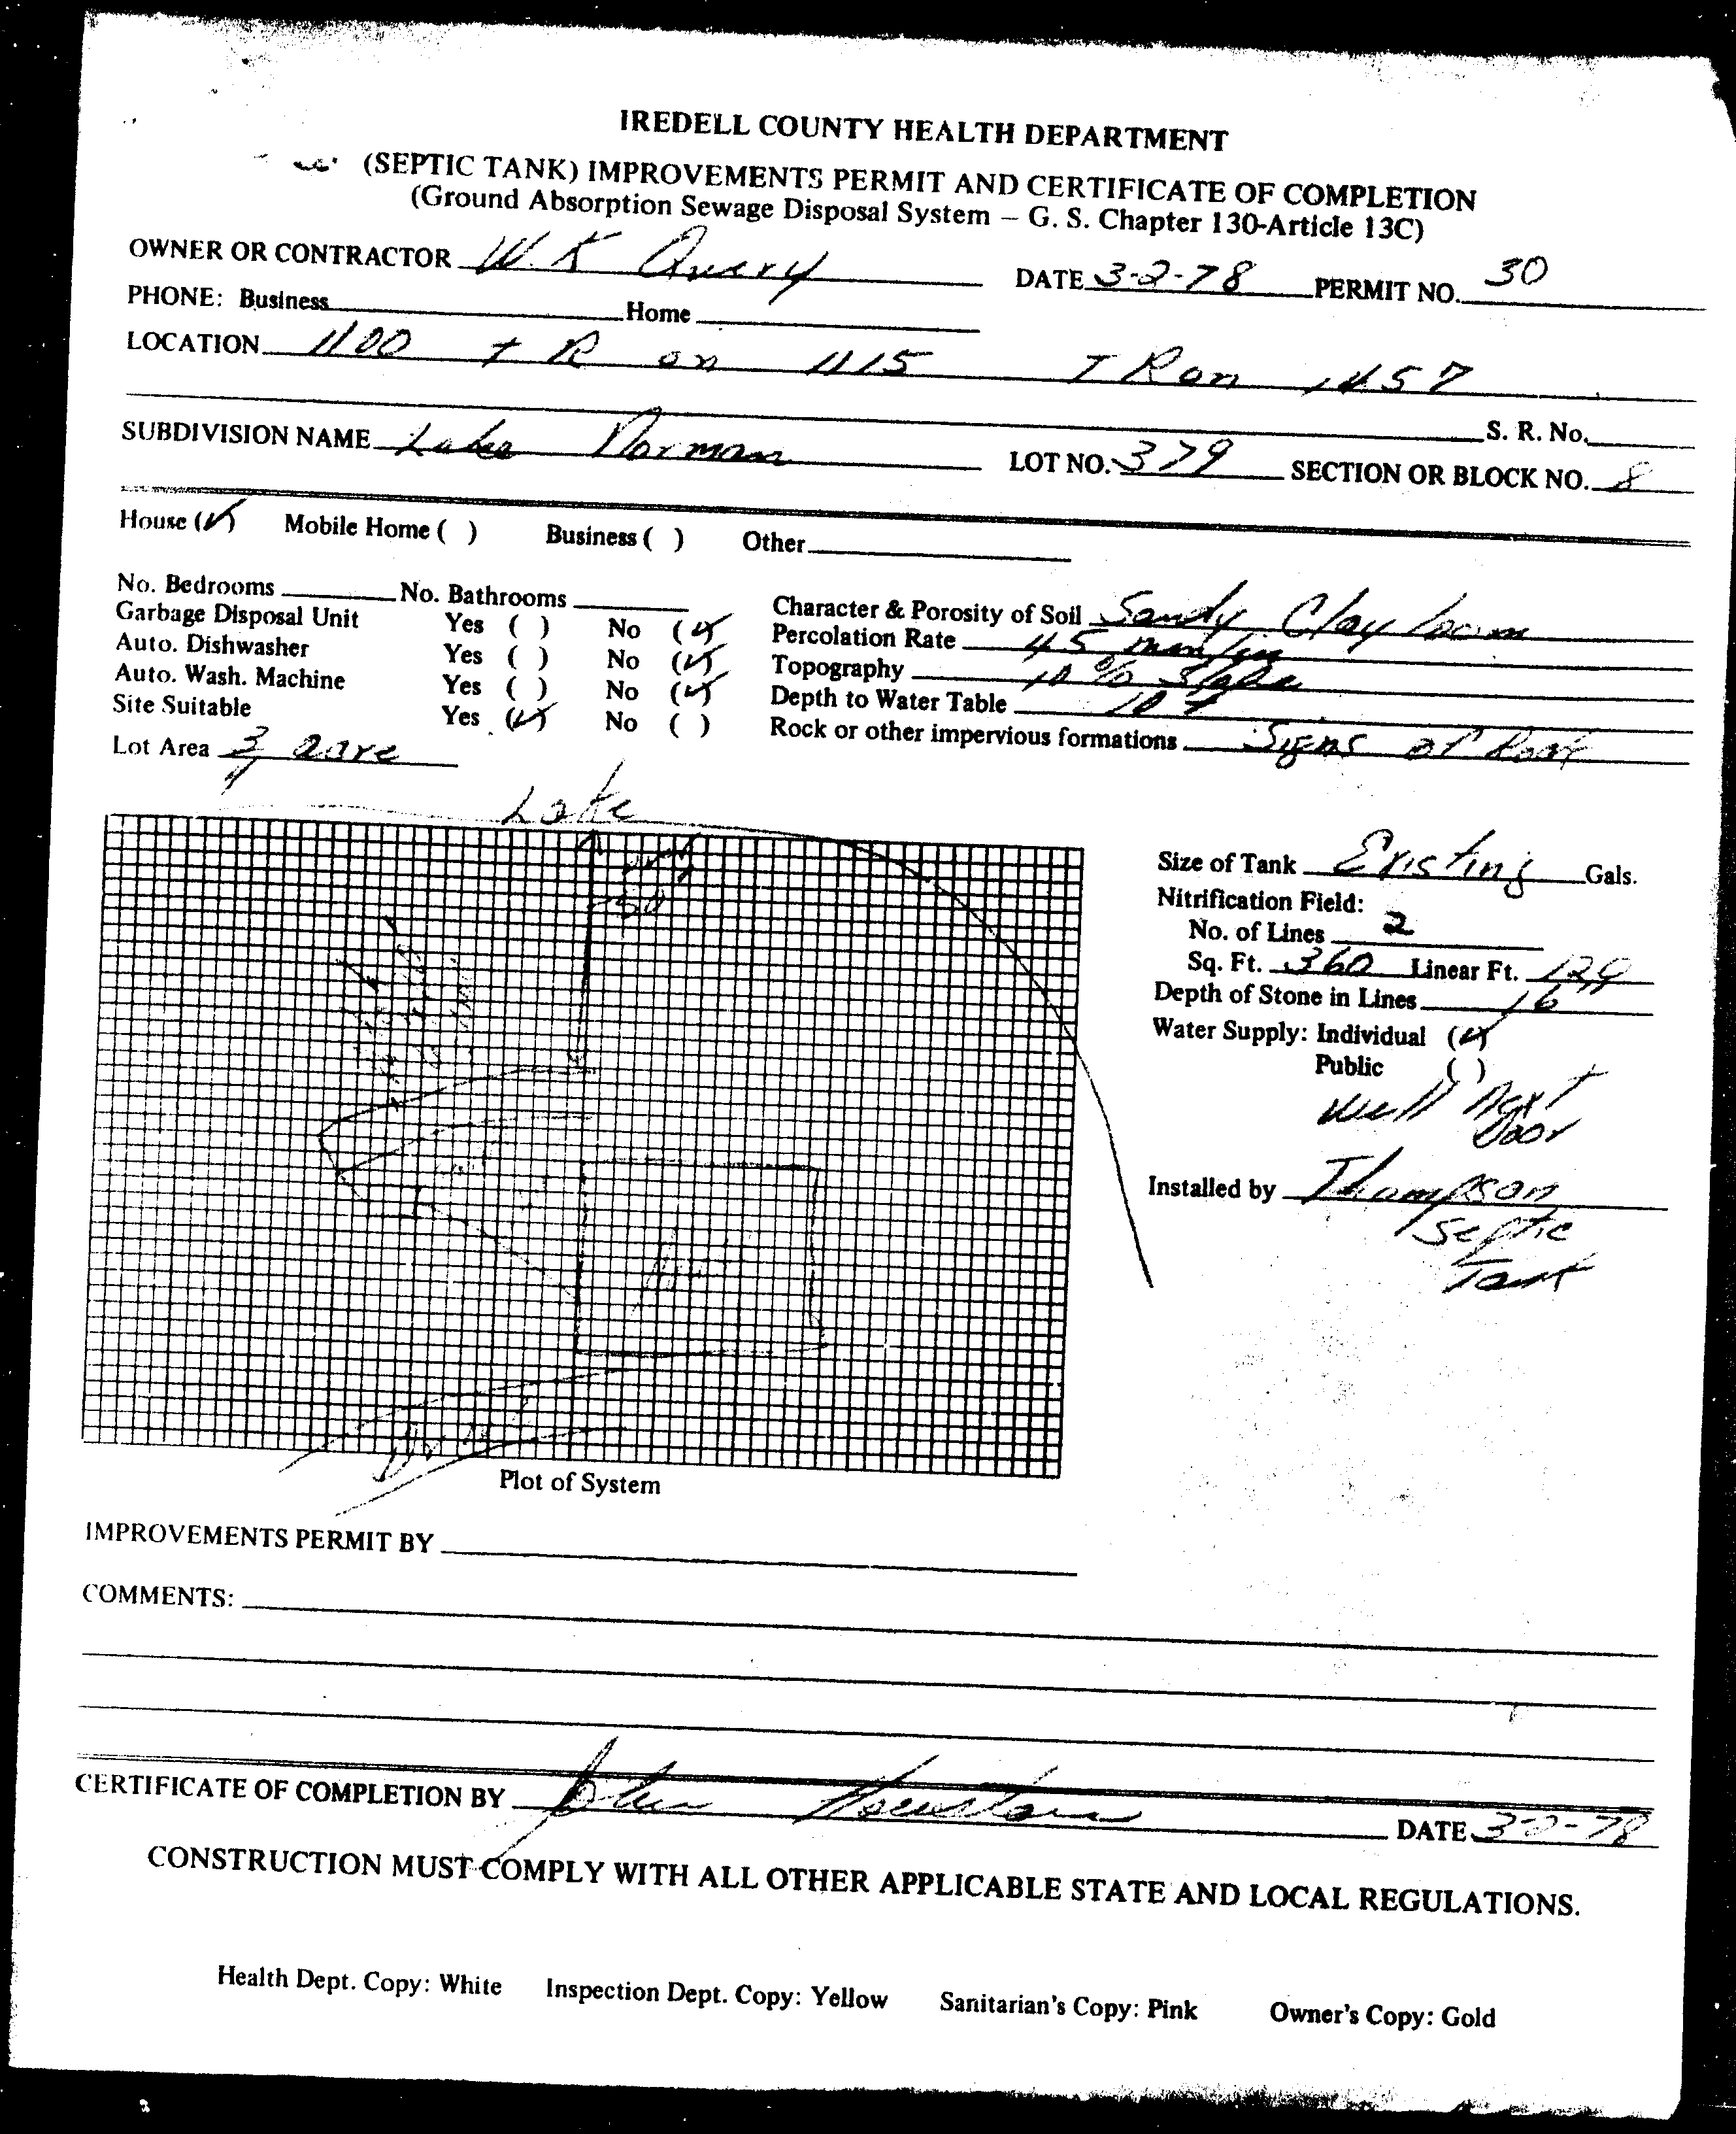 IREDELL COUNTY HEALTH DEPARTMENT
(SEPTIC TANK) IMPROVEMENTS PERMIT AND CERTIFICATE OF COMPLETION
(Ground Absorption Sewage Disposal System – G. S. Chapter 130-Article 13C)
OWNER OR CONTRACTOR W. K Query DATE 3-2-78 PERMIT NO. 30
PHONE: Business Home
LOCATION 1100 T R on 1115 T R on 1457
S. R. No.
SUBDIVISION NAME Lake Norman LOT NO. 379 SECTION OR BLOCK NO. 8
House (✓) Mobile Home ( ) Business ( ) Other
No. Bedrooms No. Bathrooms
Garbage Disposal Unit Yes ( ) No (✓)
Auto. Dishwasher Yes ( ) No (✓)
Auto. Wash. Machine Yes ( ) No (✓)
Site Suitable Yes (✓) No ( )
Lot Area 3/4 acre
Character & Porosity of Soil Sandy Clay loam
Percolation Rate 45 min/in
Topography 10 % Slope
Depth to Water Table 10 +
Rock or other impervious formations Signs of Rock
Lake
50'
Size of Tank Existing Gals.
Nitrification Field:
No. of Lines 2
Sq. Ft. 360 Linear Ft. 120
Depth of Stone in Lines 16
Water Supply: Individual (✓)
Public ( )
Well Next
Door
Installed by Thompson
Septic
Tank
Plot of System
IMPROVEMENTS PERMIT BY
COMMENTS:
CERTIFICATE OF COMPLETION BY John Houston DATE 3-2-78
CONSTRUCTION MUST COMPLY WITH ALL OTHER APPLICABLE STATE AND LOCAL REGULATIONS.
Health Dept. Copy: White Inspection Dept. Copy: Yellow Sanitarian's Copy: Pink Owner's Copy: Gold